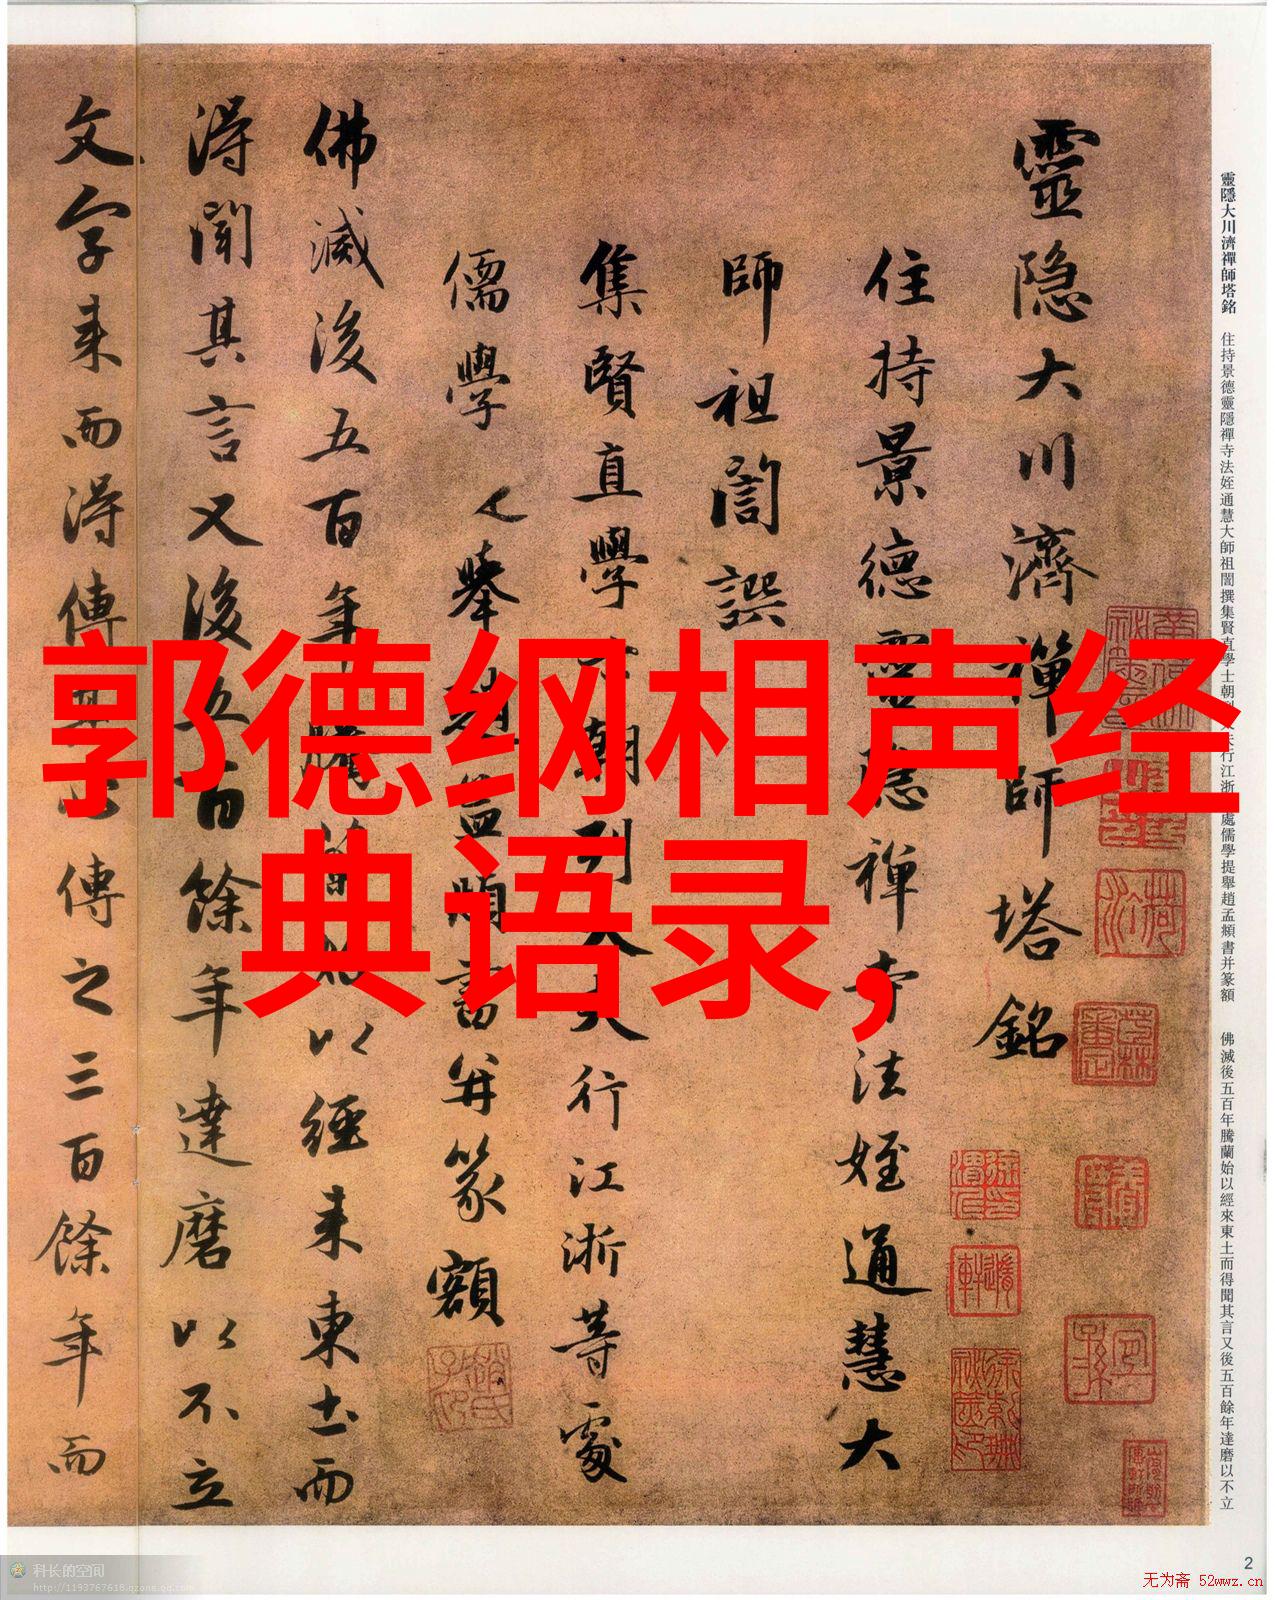 靈隱大川濟禪師塔銘 住持景德靈隱禪寺法姪通慧大師祖誾撰集賢直學士朝列大夫行江浙等處儒學提舉趙孟頫書并篆額 佛滅後五百年騰蘭始以經來東土而得聞其言又後五百餘年達磨以不立
靈隐大川濟禪師塔銘
住持景德靈隐禅寺法姪通慧大
師祖誾譔
集賢直學士朝列大夫行江浙等處
儒學提舉趙孟頫書并篆額
佛滅後五百年騰蘭始以經来東土而
得聞其言又後五百餘年達磨以不立
文字来而得傳其心傳之三百餘年而
郭德纲相声经
典语录,
2
科长的空间
http://1193767618.qzone.qq.com
无为斋 52wwz.cn